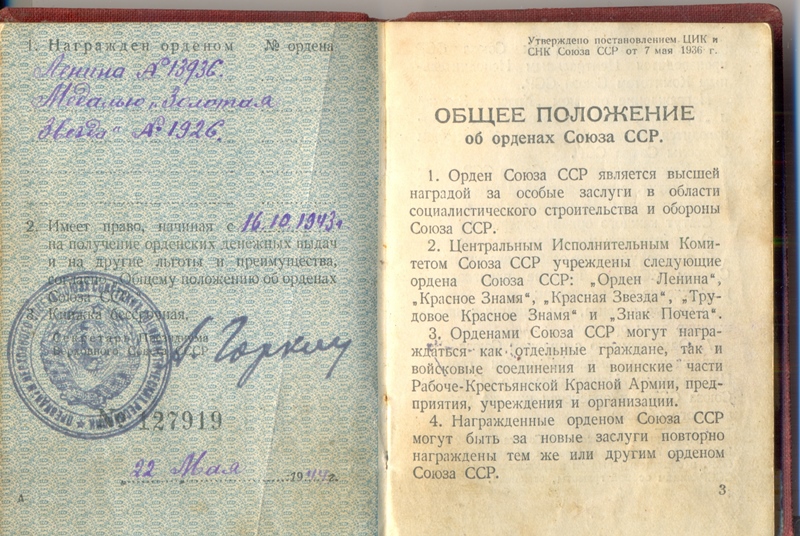 1. Награжден орденом № ордена
Ленина № 13936.
Медалью „Золотая
Звезда“ № 1926.
2. Имеет право, начиная с 16.10.1943 г
на получение орденских денежных выдач
и на другие льготы и преимущества,
согласно Общему положению об орденах
Союза ССР.
3. Книжка бессрочная.
Секретарь Президиума
Верховного Совета СССР
А Горкин
№ 127919
22 Мая 1944 г.
А
Утверждено постановлением ЦИК и
СНК Союза ССР от 7 мая 1936 г.
ОБЩЕЕ ПОЛОЖЕНИЕ
об орденах Союза ССР.
1. Орден Союза ССР является высшей
наградой за особые заслуги в области
социалистического строительства и обороны
Союза ССР.
2. Центральным Исполнительным Коми-
тетом Союза ССР учреждены следующие
ордена Союза ССР: „Орден Ленина“,
„Красное Знамя“, „Красная Звезда“, „Тру-
довое Красное Знамя“ и „Знак Почета“.
3. Орденами Союза ССР могут награ-
ждаться как отдельные граждане, так и
войсковые соединения и воинские части
Рабоче-Крестьянской Красной Армии, пред-
приятия, учреждения и организации.
4. Награжденные орденом Союза ССР
могут быть за новые заслуги повторно
награждены тем же или другим орденом
Союза ССР.
3